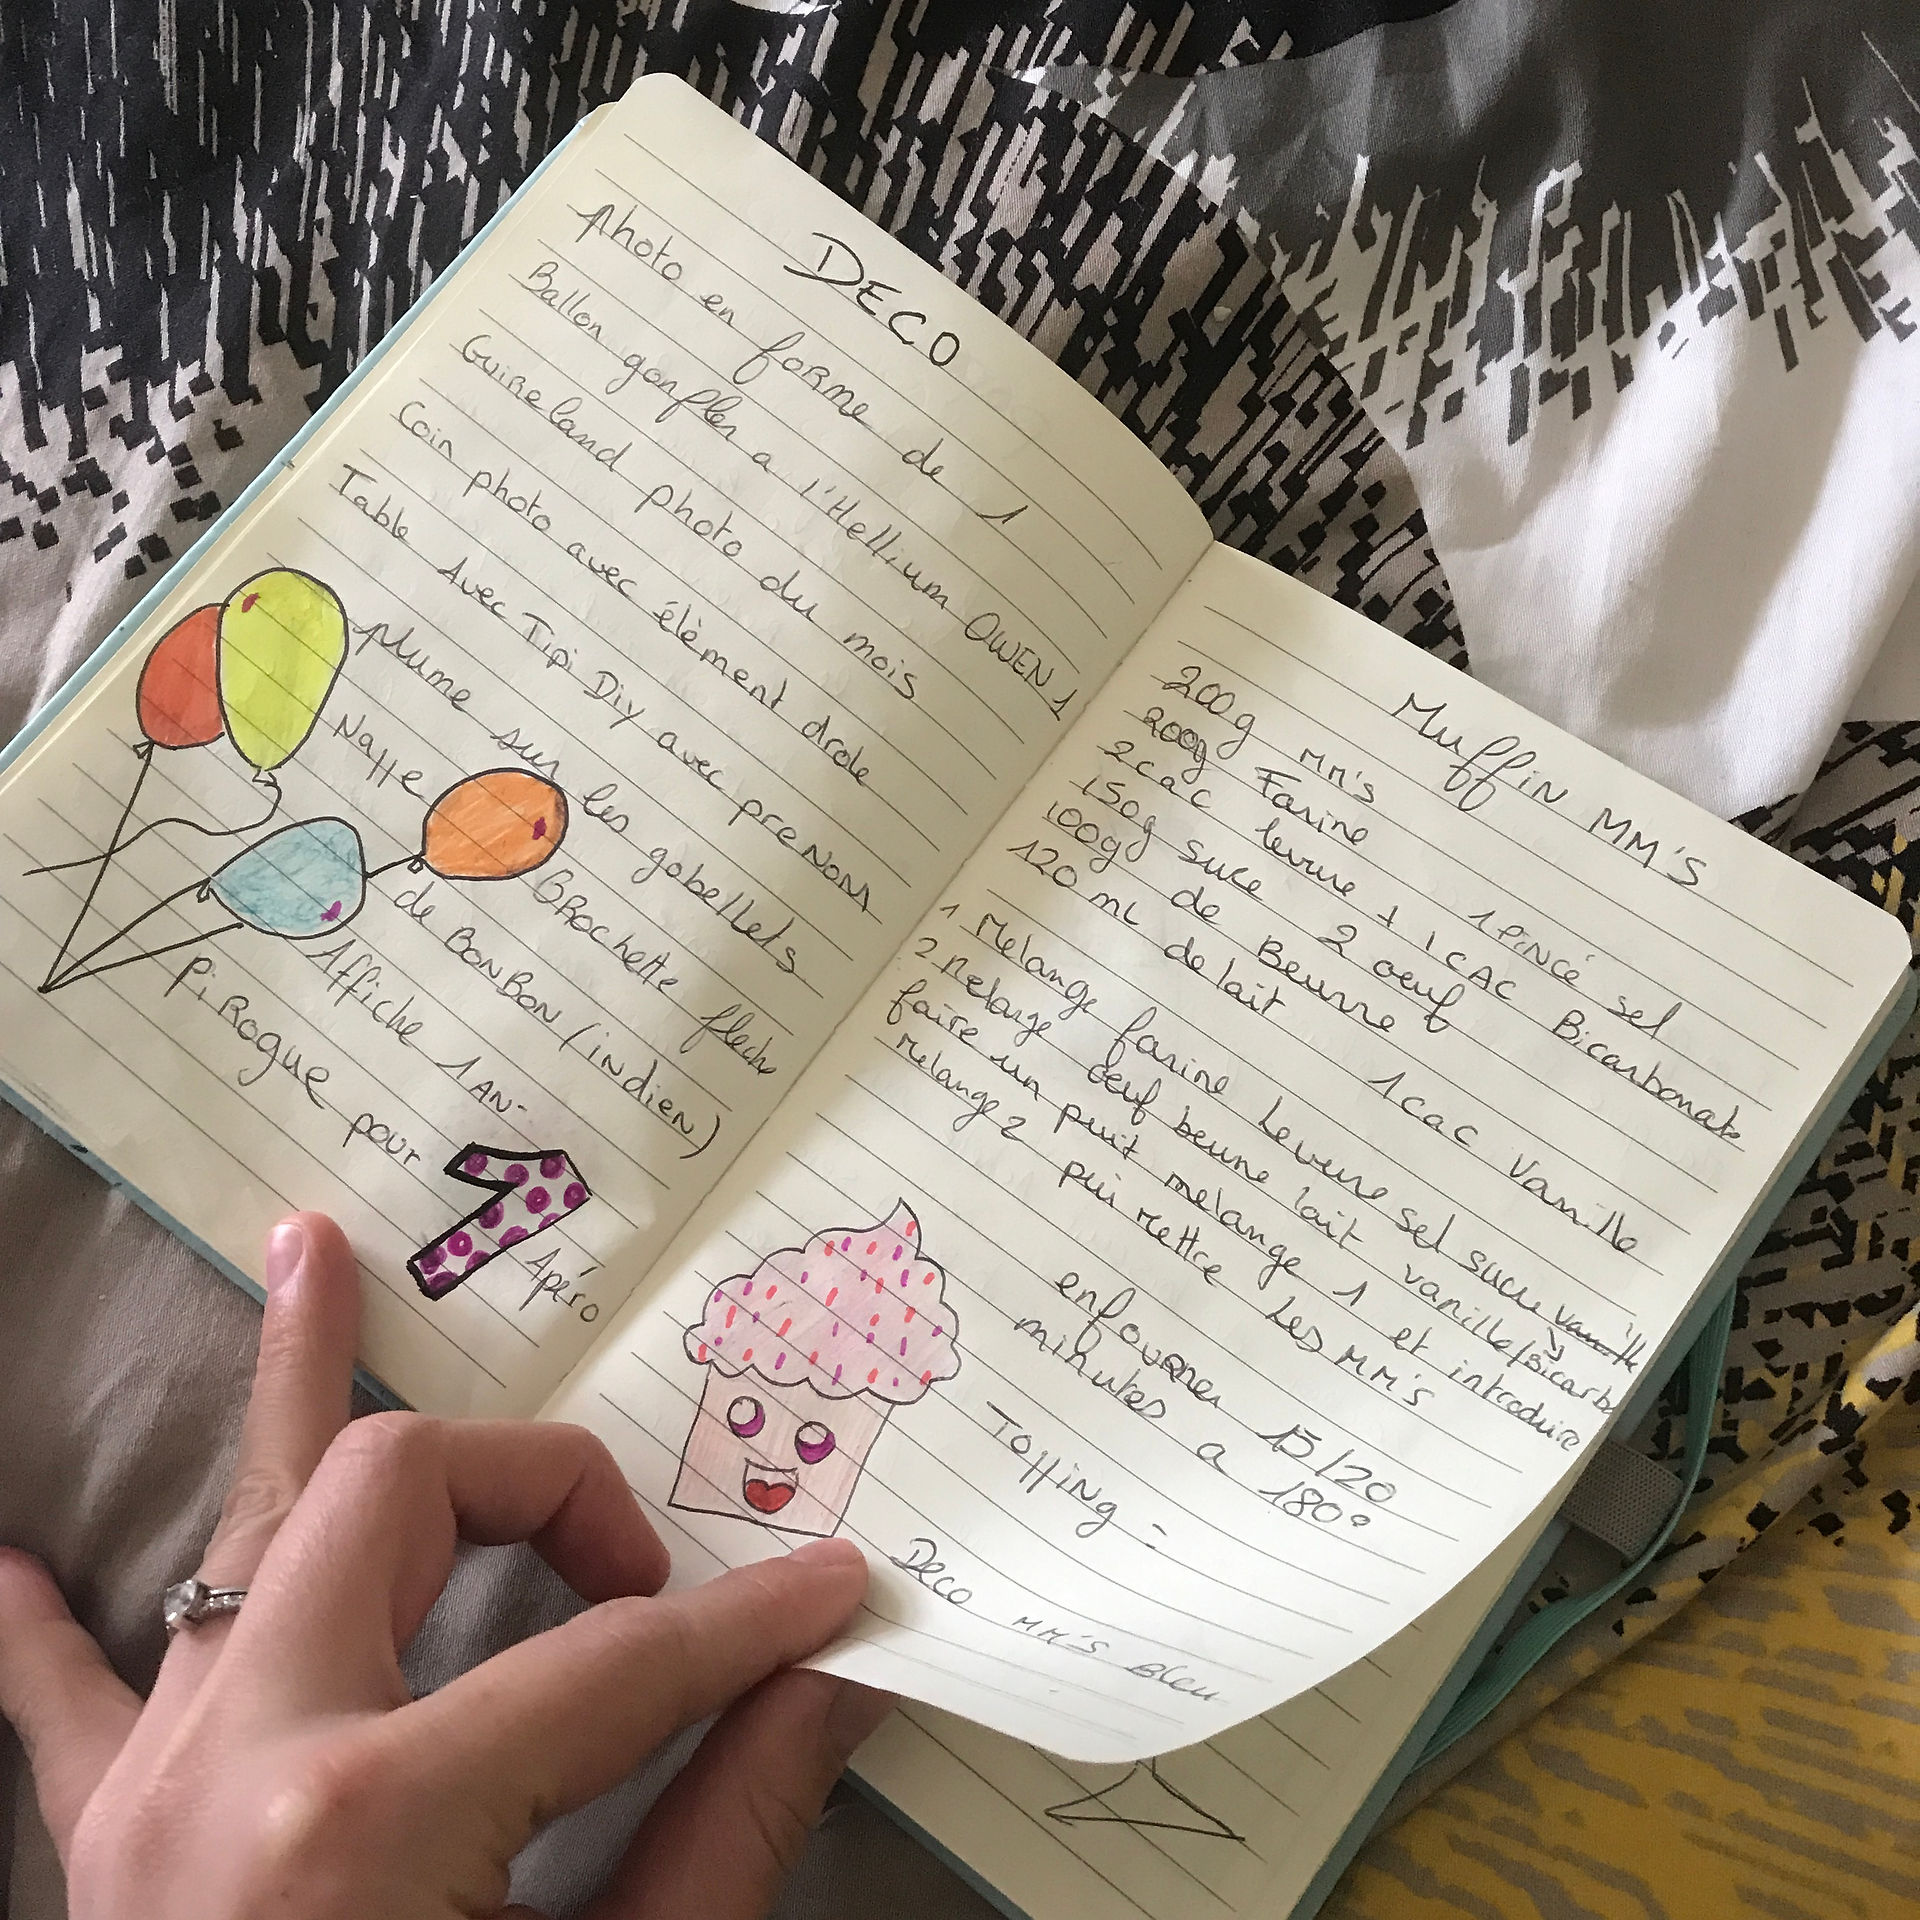 DECO
Photo en forme de 1
Ballon gonfler a l'Hellium OWEN 1
Guireland photo du mois
Coin photo avec élèment drole
Table Avec Tipi Diy avec preNom
plume sur les gobellets
Nappe
BRochette fleche
de BonBon (indien)
Affiche 1 AN-
piRogue pour
1
Apéro
Muffin MM'S
200g MM'S
200g Farine 1 PiNCé sel
2 cac levure + 1 CAC Bicarbonate
150g sucre 2 oeuf
100g de Beurre
120 mL de lait 1 cac Vanille
1 Melange farine Levure sel sucre vanille
2 Melange oeuf beurre lait vanille/Bicarb
faire un puit melange 1 et introduire
Melange 2
pui Mettre Les MM's
enfourner 15/20
minutes a 180°
Topping =
Deco MM'S Bleu